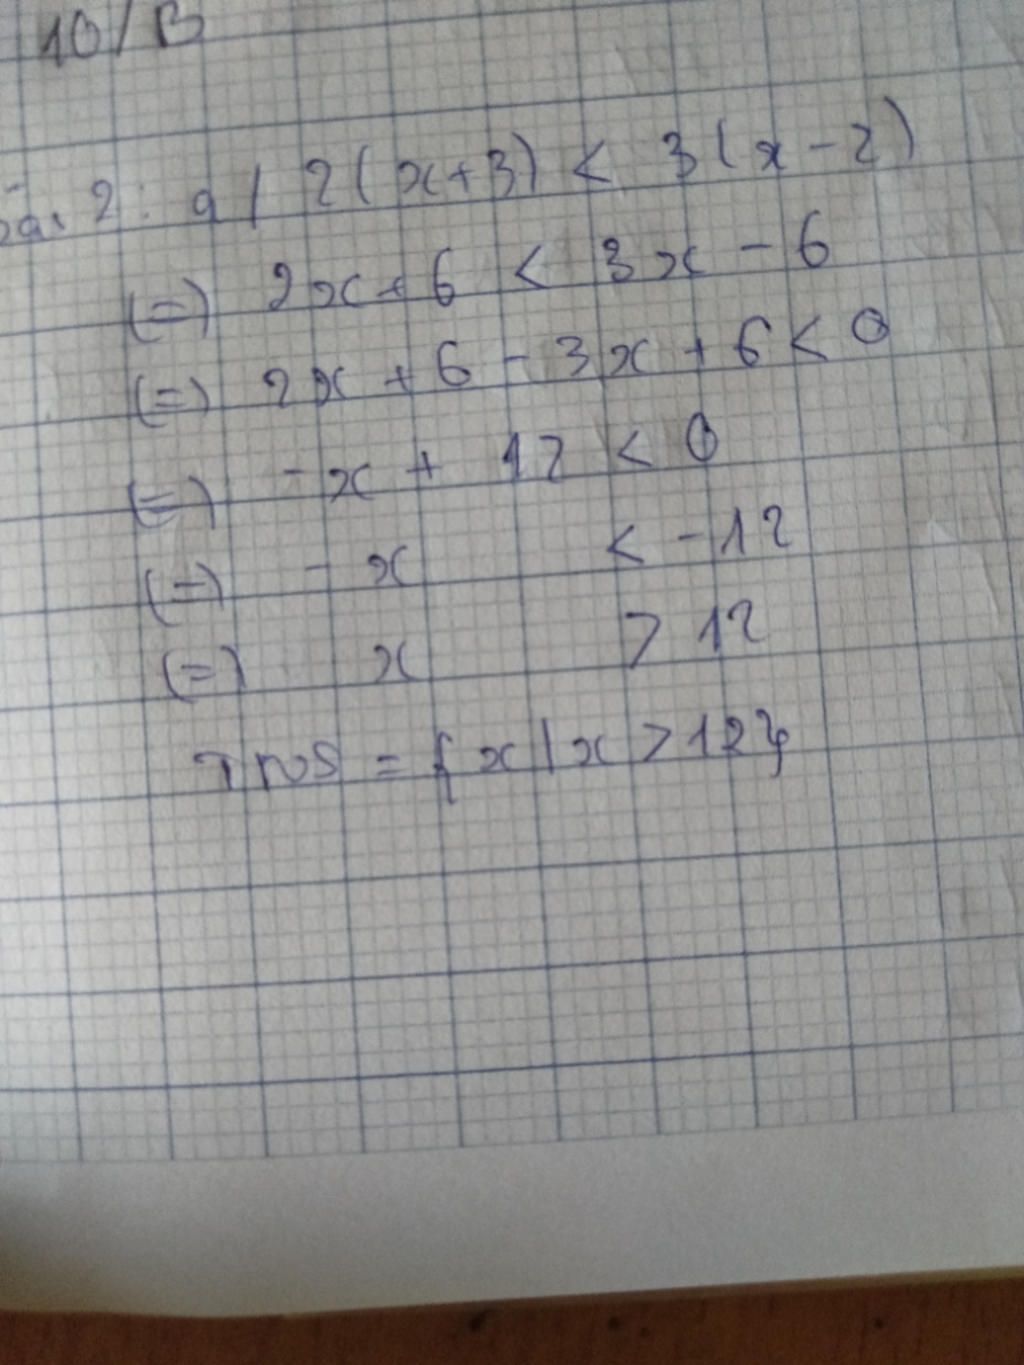 10/B
2: a/ 2(x+3) < 3(x-2)
(=) 2x+6 < 3x-6
(=) 2x+6-3x+6<0
(=) -x+12<0
(=) -x < -12
(=) x > 12
Tnos = {x|x>12}